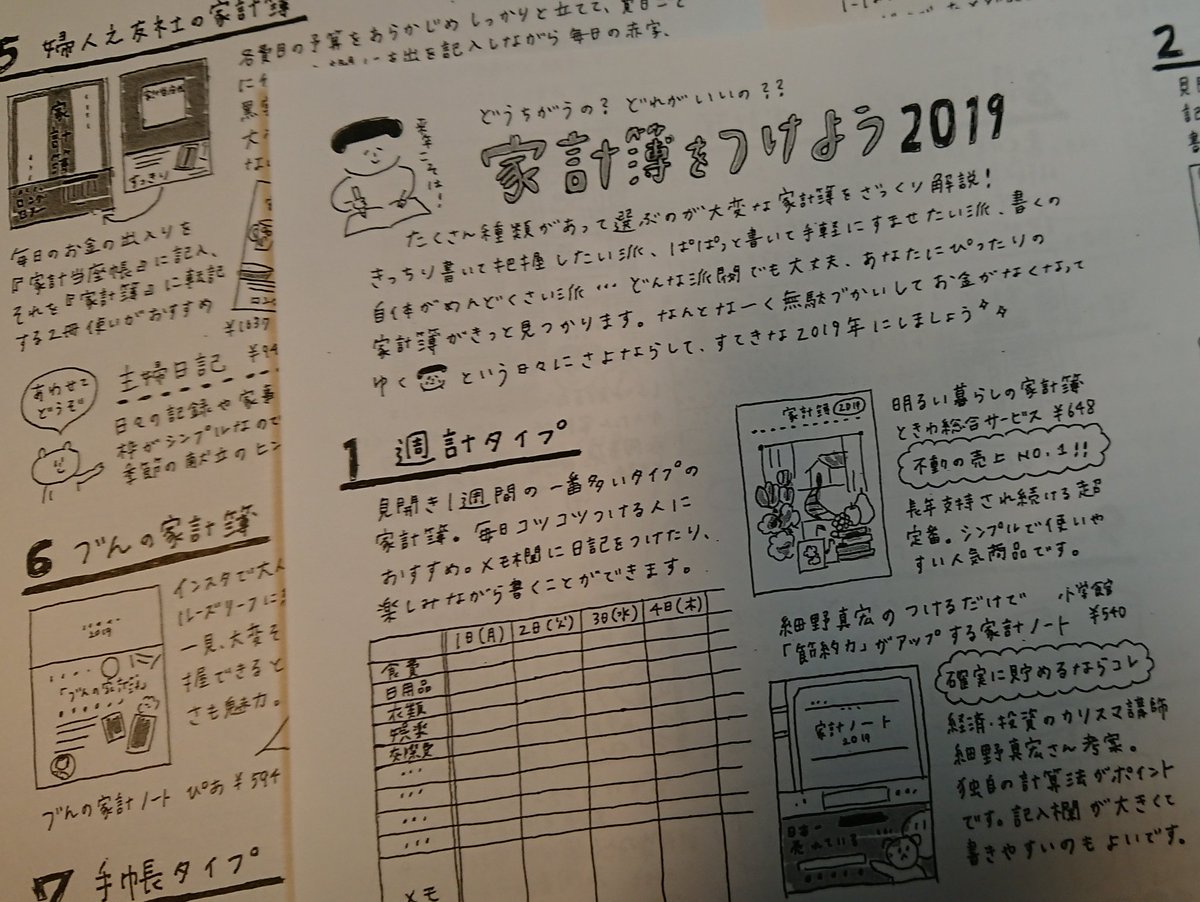 どうちがうの？どれがいいの？？
来年こそは！
家計簿をつけよう2019
たくさん種類があって選ぶのが大変な家計簿をざっくり解説！
きっちり書いて把握したい派、ぱぱっと書いて手軽にすませたい派、書くの
自体がめんどくさい派…どんな派閥でも大丈夫、あなたにぴったりの
家計簿がきっと見つかります。なんとなーく無駄づかいしてお金がなくなって
ゆく という日々にさよならして、すてきな2019年にしましょう
1 週計タイプ
見開き1週間の一番多いタイプの
家計簿。毎日コツコツつける人に
おすすめ。メモ欄に日記をつけたり、
楽しみながら書くことができます。
1日(月) 2日(火) 3日(水) 4日(木)
食費
日用品
衣類
娯楽
交際費
…
…
…
…
メモ
家計簿 2019
明るい暮らしの家計簿
ときわ総合サービス ¥648
不動の売上NO.1!!
長年支持され続ける超
定番。シンプルで使いや
すい人気商品です。
細野真宏のつけるだけで 小学館
「節約力」がアップする家計ノート ¥540
家計ノート
2019
日本一
売れている
確実に貯めるならコレ
経済・投資のカリスマ講師
細野真宏さん考案。
独自の計算法がポイント
です。記入欄が大きくて
書きやすいのもよいです。
2
5 婦人之友社の家計簿
各費目の予算をあらかじめしっかりと立てて、
を記入しながら毎日の赤字、
家計簿
ロング
セラー
すっきり
毎日のお金の出入りを
『家計当座帳』に記入、
それを『家計簿』に転記
する2冊使いがおすすめ
¥1037
あわせて
どうぞ
主婦日記
日々の記録や家事
枠がシンプルなので
季節の献立のヒン
6 づんの家計簿
2019
「づんの家計簿」
インスタで大人
ルーズリーフに
一見、大変そ
握できると
さも魅力。
づんの家計ノート ぴあ ¥594
7 手帳タイプ